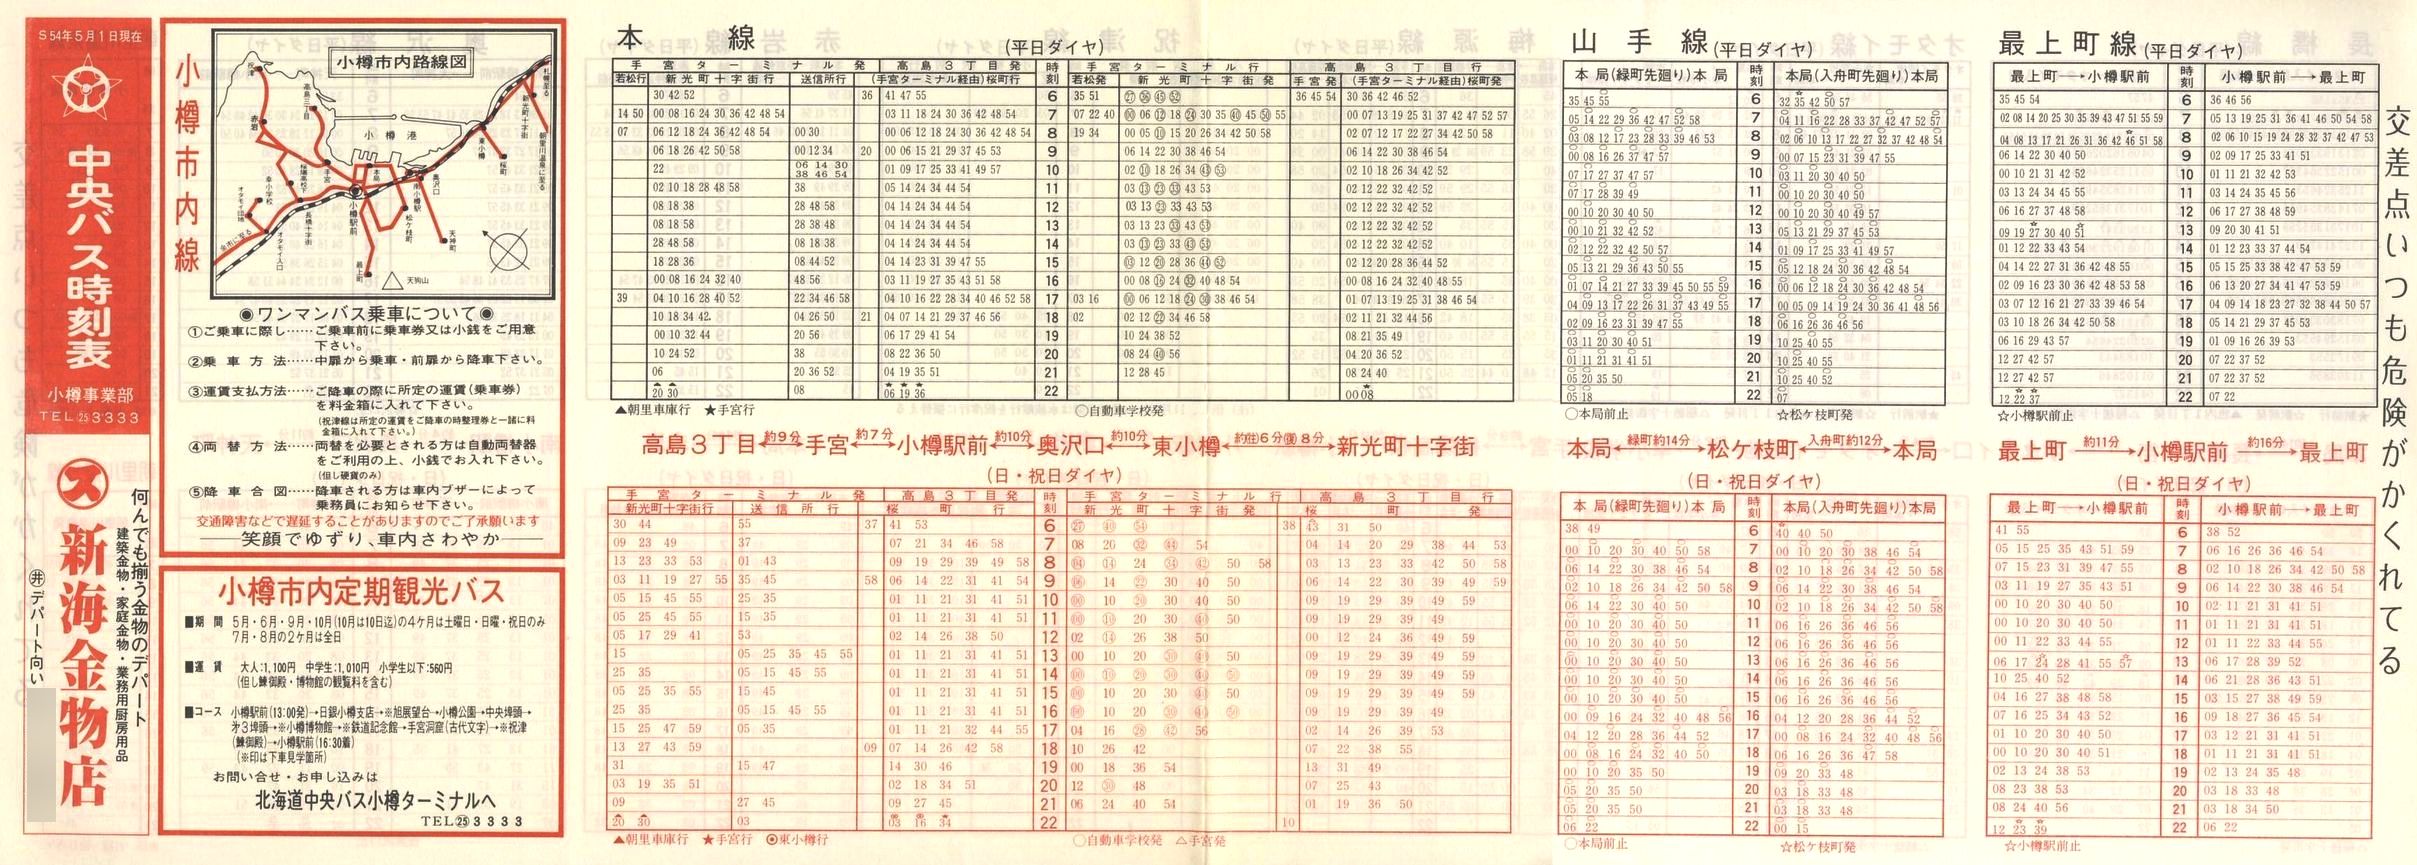 S54年5月1日現在
中央バス時刻表
小樽事業部
TEL㉕3333
何んでも揃う金物のデパート
建築金物・家庭金物・業務用厨房用品
新海金物店
㊥デパート向い
小樽市内線
小樽市内路線図
小樽港
祝津
赤岩
高島三丁目
手宮
本局
小樽駅前
最上町
天狗山
天神町
松ケ枝町
奥沢口
南小樽駅
東小樽
桜町
新光町十字街
長橋十字街
オタモイ入口
◉ワンマンバス乗車について◉
①ご乗車に際し……ご乗車前に乗車券又は小銭をご用意
下さい。
②乗車方法……中扉から乗車・前扉から降車下さい。
③運賃支払方法……ご降車の際に所定の運賃(乗車券)
を料金箱に入れて下さい。
(祝津線は所定の運賃をご降車の時整理券と一緒に料
金箱に入れて下さい。)
④両替方法……両替を必要とされる方は自動両替器
をご利用の上、小銭でお入れ下さい。
(但し硬貨のみ)
⑤降車合図……降車される方は車内ブザーによって
乗務員にお知らせ下さい。
交通障害などで遅延することがありますのでご了承願います
──笑顔でゆずり、車内さわやか──
小樽市内定期観光バス
■期間 5月・6月・9月・10月(10月は10日迄)の4ケ月は土曜日・日曜・祝日のみ
7月・8月の2ケ月は全日
■運賃 大人:1,100円 中学生:1,010円 小学生以下:560円
(但し鰊御殿・博物館の観覧料を含む)
■コース 小樽駅前(13:00発)→日銀小樽支店→※旭展望台→小樽公園→中央埠頭→
第3埠頭→※小樽博物館→※鉄道記念館→手宮洞窟(古代文字)→※祝津
(鰊御殿)→小樽駅前(16:30着)
(※印は下車見学箇所)
お問い合せ・お申し込みは
北海道中央バス小樽ターミナルへ
TEL㉕3333
本線 (平日ダイヤ)
手宮ターミナル発 高島3丁目発 時刻 手宮ターミナル行 高島3丁目行
若松行 新光町十字街行 送信所行 (手宮ターミナル経由)桜町行 若松発 新光町十字街発 手宮発 (手宮ターミナル経由)桜町発
30 42 52 36 41 47 55 6 35 51 ㉗ ㊱ ㊺ 36 45 54 30 36 42 46 52
14 50 00 08 16 24 30 36 42 48 54 03 11 18 24 30 36 42 48 54 7 07 22 40 00 07 13 19 25 31 37 42 47 52 57
07 06 12 18 24 36 42 48 54 00 30 00 06 12 18 24 30 36 42 48 54 8 19 34 00 05 ⑩ 15 20 26 34 42 50 58 02 07 12 17 22 27 34 42 50 58
06 18 26 42 50 58 00 12 34 20 00 06 15 21 29 37 45 53 9 06 14 22 30 38 46 54 06 14 22 30 38 46 54
22 06 14 30 38 46 54 01 09 17 25 33 41 49 57 10 02 ⑩ 18 26 34 ㊸ 02 10 18 26 34 42 52
02 10 18 28 48 58 38 05 14 24 34 44 54 11 03 ⑬ ㉓ ㉝ 43 53 02 12 22 32 42 52
08 18 38 28 48 58 04 14 24 34 44 54 12 03 13 ㉓ 33 43 53 02 12 22 32 42 52
08 18 58 28 38 48 04 14 24 34 44 54 13 03 13 23 ㉝ 43 02 12 22 32 42 52
28 48 58 08 18 38 04 14 24 34 44 54 14 03 ⑬ ㉓ 33 ㊸ 02 12 22 32 42 52
18 28 36 08 44 52 04 14 23 31 39 47 55 15 12 ⑳ 28 36 ㊹ 02 12 20 28 36 44 52
00 08 16 24 32 40 48 56 03 11 19 27 35 43 51 58 16 00 08 ⑯ 24 ㉜ 40 48 54 00 08 16 24 32 40 48 55
39 04 10 16 28 40 52 22 34 46 58 04 10 16 22 28 34 40 46 52 58 17 03 16 06 12 18 ㉔ ㉚ 38 46 54 01 07 13 19 25 31 38 46 54
10 18 34 42 04 26 50 21 04 07 14 21 29 37 46 56 18 02 02 12 ㉒ 34 46 58 02 11 21 32 44 56
00 10 32 44 20 56 06 17 29 41 54 19 10 24 38 52 08 21 35 49
10 24 52 38 08 22 36 50 20 08 24 ㊵ 56 04 20 36 52
06 20 36 52 04 19 35 51 21 12 28 45 08 24 40
20 30 08 06 19 36 22 00 08
▲朝里車庫行 ★手宮行 ○自動車学校発
高島3丁目←約9分→手宮←約7分→小樽駅前←約10分→奥沢口←約10分→東小樽←約(往)6分(復)8分→新光町十字街
(日・祝日ダイヤ)
手宮ターミナル発 高島3丁目発 時刻 手宮ターミナル行 高島3丁目行
新光町十字街行 送信所行 桜町行 新光町十字街発 桜町発
30 44 55 37 41 53 6 ㉗ ㊵ 38 13 31 50
09 23 49 37 07 21 34 46 58 7 08 20 ㉜ ㊹ 54 04 14 20 29 38 44 53
13 23 33 53 01 43 09 19 29 39 49 58 8 ⑭ 24 ㉞ ㊷ 50 58 03 13 23 33 42 50 58
03 11 19 27 55 35 45 58 06 14 22 31 41 54 9 14 ㉒ 30 40 50 06 14 22 30 39 49 59
05 15 45 55 25 35 01 11 21 31 41 51 10 10 ⑳ 30 40 50 09 19 29 39 49 59
05 25 45 55 15 35 01 11 21 31 41 51 11 ⑩ 20 30 ㊵ 50 09 19 29 39 49 59
05 17 29 41 53 02 14 26 38 50 12 02 ⑭ 26 38 50 00 12 24 36 49 59
15 05 25 35 45 55 01 11 21 31 41 51 13 00 10 20 ㉚ ㊵ 50 09 19 29 39 49 59
25 35 05 15 45 55 01 11 21 31 41 51 14 ⑩ ⑳ ㉚ ㊵ ㊿ 09 19 29 39 49 59
05 25 35 55 15 45 01 11 21 31 41 51 15 10 20 30 ㊵ 50 09 19 29 39 49 59
25 35 05 15 45 55 01 11 21 31 41 51 16 10 20 ㉚ ㊵ ㊿ 09 19 29 39 49
15 25 47 59 05 35 01 11 21 32 44 55 17 04 16 ㉘ ㊷ 56 02 14 26 39 53
13 27 43 59 09 07 14 26 42 58 18 10 26 42 07 22 38 55
31 15 47 14 30 46 19 00 18 36 54 13 31 49
03 19 35 51 02 18 34 51 20 12 ㉚ 48 07 25 43
09 27 45 09 27 45 21 06 24 40 54 01 19 36 50
20 30 03 03 16 34 22 10
▲朝里車庫行 ★手宮行 ◉東小樽行 ○自動車学校発 △手宮発
山手線 (平日ダイヤ)
本局(緑町先廻り)本局 時刻 本局(入舟町先廻り)本局
35 45 55 6 32 35 42 50 57
05 14 22 29 36 42 47 52 58 7 04 11 16 22 28 33 37 42 47 52 57
03 08 12 17 23 28 33 39 46 53 8 02 06 10 13 17 22 27 32 37 42 48 54
00 08 16 26 37 47 57 9 00 07 15 23 31 39 47 55
07 17 27 37 47 57 10 03 11 20 30 40 50
07 17 28 39 49 11 00 10 20 30 40 50
00 10 20 30 40 50 12 00 10 20 30 40 49 57
00 10 21 32 42 52 13 05 13 21 29 37 45 53
02 12 22 32 42 50 57 14 01 09 17 25 33 41 49 57
05 13 21 29 36 43 50 55 15 05 12 18 24 30 36 42 48 54
01 07 14 21 27 33 39 45 50 55 59 16 00 06 12 18 24 30 36 42 48 54
04 09 13 17 22 26 31 37 43 49 55 17 00 05 09 14 19 24 30 36 41 48 56
02 09 16 23 31 39 47 55 18 06 16 26 36 46 56
03 11 20 30 40 51 19 10 25 40 55
01 11 21 31 41 51 20 10 25 40 55
05 20 35 50 21 10 25 40 52
05 18 22 07
○本局前止 ☆松ケ枝町発
本局←緑町約14分→松ケ枝町←入舟町約12分→本局
(日・祝日ダイヤ)
本局(緑町先廻り)本局 時刻 本局(入舟町先廻り)本局
38 49 6 40 40 50
00 10 20 30 40 50 58 7 00 10 20 30 38 46 54
06 14 22 30 38 46 54 8 02 10 18 26 34 42 50 58
02 10 18 26 34 42 50 58 9 06 14 22 30 38 46 54
06 14 22 30 40 50 10 02 10 18 26 34 42 50 58
00 10 20 30 40 50 11 06 16 26 36 46 56
00 10 20 30 40 50 12 06 16 26 36 46 56
00 10 20 30 40 50 13 06 16 26 36 46 56
00 10 20 30 40 50 14 06 16 26 36 46 56
00 10 20 30 40 50 15 06 16 26 36 46 56
00 09 16 24 32 40 48 56 16 04 12 20 28 36 44 52
04 12 20 28 36 44 52 17 00 08 16 24 32 40 48 56
00 08 16 24 32 40 50 18 06 16 26 36 47 58
00 10 20 35 50 19 09 20 33 48
05 20 35 50 20 03 18 33 48
05 20 35 50 21 03 18 33 48
06 22 22 00 15
○本局前止 ☆松ケ枝町発
最上町線 (平日ダイヤ)
最上町→小樽駅前 時刻 小樽駅前→最上町
35 45 54 6 36 46 56
02 08 14 20 25 30 35 39 43 47 51 55 59 7 05 13 19 25 31 36 41 46 50 54 58
04 08 13 17 21 26 31 36 42 46 51 58 8 02 06 10 15 19 24 28 32 37 42 47 53
06 14 22 30 40 50 9 02 09 17 25 33 41 51
00 10 21 31 42 52 10 01 11 21 32 42 53
03 13 24 34 45 55 11 03 14 24 35 45 56
06 16 27 37 48 58 12 06 17 27 38 48 59
09 19 27 30 40 51 13 09 20 30 41 51
01 12 22 33 43 54 14 01 12 23 33 37 44 54
04 14 22 27 31 36 42 48 55 15 05 15 25 33 38 42 47 53 59
02 09 16 23 30 36 42 48 53 58 16 06 13 20 27 34 41 47 53 59
03 07 12 16 21 27 33 39 46 54 17 04 09 14 18 23 27 32 38 44 50 57
03 10 18 26 34 42 50 58 18 05 14 21 29 37 45 53
06 16 29 43 57 19 01 09 16 26 39 53
12 27 42 57 20 07 22 37 52
12 27 42 57 21 07 22 37 52
12 22 37 22 07 22
☆小樽駅前止
最上町←約11分→小樽駅前←約16分→最上町
(日・祝日ダイヤ)
最上町→小樽駅前 時刻 小樽駅前→最上町
41 55 6 38 52
05 15 25 35 43 51 59 7 06 16 26 36 46 54
07 15 23 31 39 47 55 8 02 10 18 26 34 42 50 58
03 11 19 27 35 43 51 9 06 14 22 30 38 46 54
00 10 20 30 40 50 10 02 11 21 31 41 51
00 10 20 30 40 50 11 01 11 21 31 41 51
00 11 22 33 44 55 12 01 11 22 33 44 55
06 17 24 28 41 55 57 13 06 17 28 39 52
10 25 40 52 14 06 21 28 36 43 51
04 16 27 38 48 58 15 03 15 27 38 49 59
07 16 25 34 43 52 16 09 18 27 36 45 54
01 10 20 30 40 50 17 03 12 21 31 41 51
00 10 20 30 40 51 18 01 11 21 31 41 51
02 13 24 38 53 19 02 13 24 35 48
08 23 38 53 20 03 18 33 48
08 24 40 56 21 03 18 34 50
12 23 39 22 06 22
☆小樽駅前止
交差点いつも危険がかくれてる